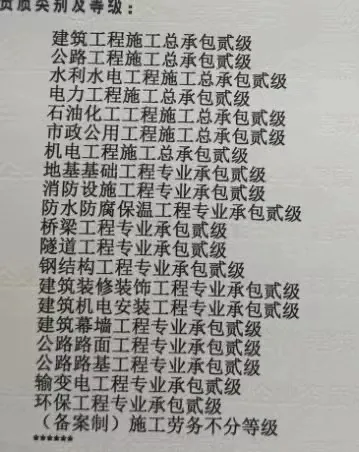 资质类别及等级：
建筑工程施工总承包贰级
公路工程施工总承包贰级
水利水电工程施工总承包贰级
电力工程施工总承包贰级
石油化工工程施工总承包贰级
市政公用工程施工总承包贰级
机电工程施工总承包贰级
地基基础工程专业承包贰级
消防设施工程专业承包贰级
防水防腐保温工程专业承包贰级
桥梁工程专业承包贰级
隧道工程专业承包贰级
钢结构工程专业承包贰级
建筑装修装饰工程专业承包贰级
建筑机电安装工程专业承包贰级
建筑幕墙工程专业承包贰级
公路路面工程专业承包贰级
公路路基工程专业承包贰级
输变电工程专业承包贰级
环保工程专业承包贰级
（备案制）施工劳务不分等级
******